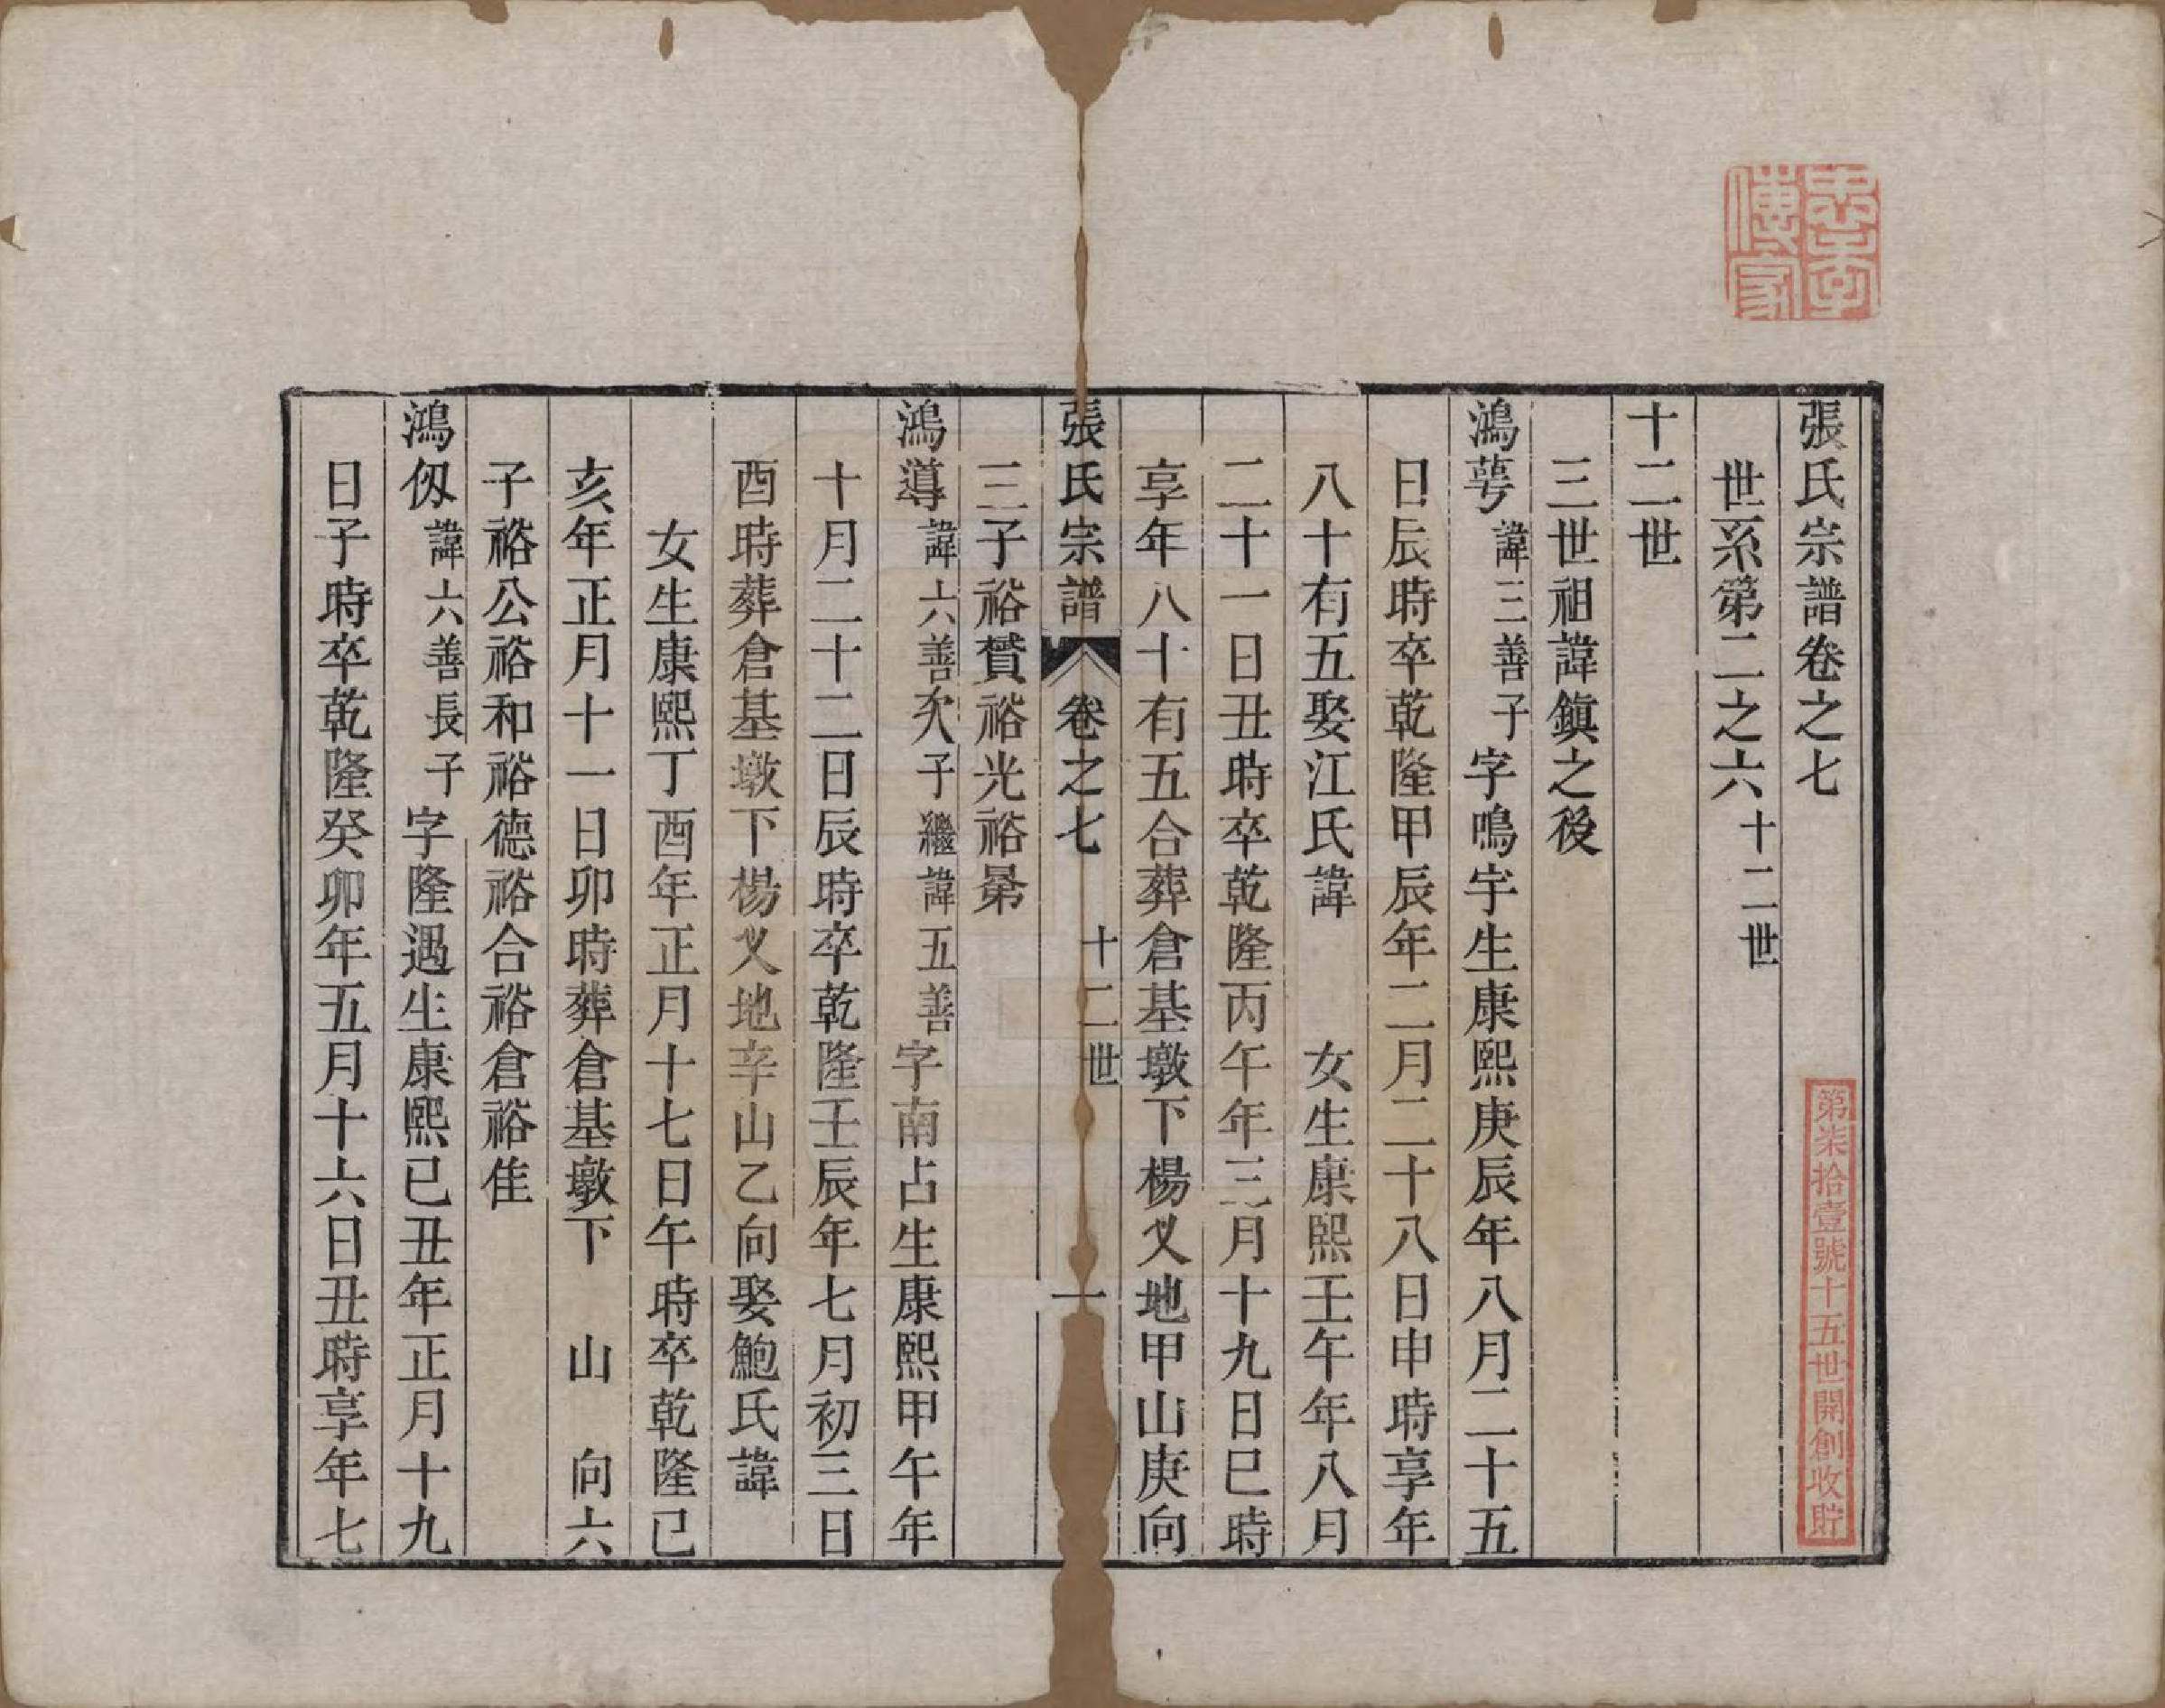 張氏宗譜卷之七
世系第二之六十二世
十二世
三世祖諱鎭之後
鴻蕚諱三善子字鳴宇生康熙庚辰年八月二十五
日辰時卒乾隆甲辰年二月二十八日申時享年
八十有五娶江氏諱　女生康熙壬午年八月
二十一日丑時卒乾隆丙午年三月十九日巳時
享年八十有五合葬倉基墩下楊义地甲山庚向
三子裕贊裕光裕㬎
張氏宗譜　卷之七　十二世　一
鴻導諱六善次子繼諱五善字南占生康熙甲午年
十月二十二日辰時卒乾隆壬辰年七月初三日
酉時葬倉基墩下楊义地辛山乙向娶鮑氏諱
女生康熙丁酉年正月十七日午時卒乾隆己
亥年正月十一日卯時葬倉基墩下　山　向六
子裕公裕和裕德裕合裕倉裕隹
鴻仭諱六善長子字隆遇生康熙已丑年正月十九
日子時卒乾隆癸卯年五月十六日丑時享年七
忠孝傳家
第柒拾壹號十五世開創收貯